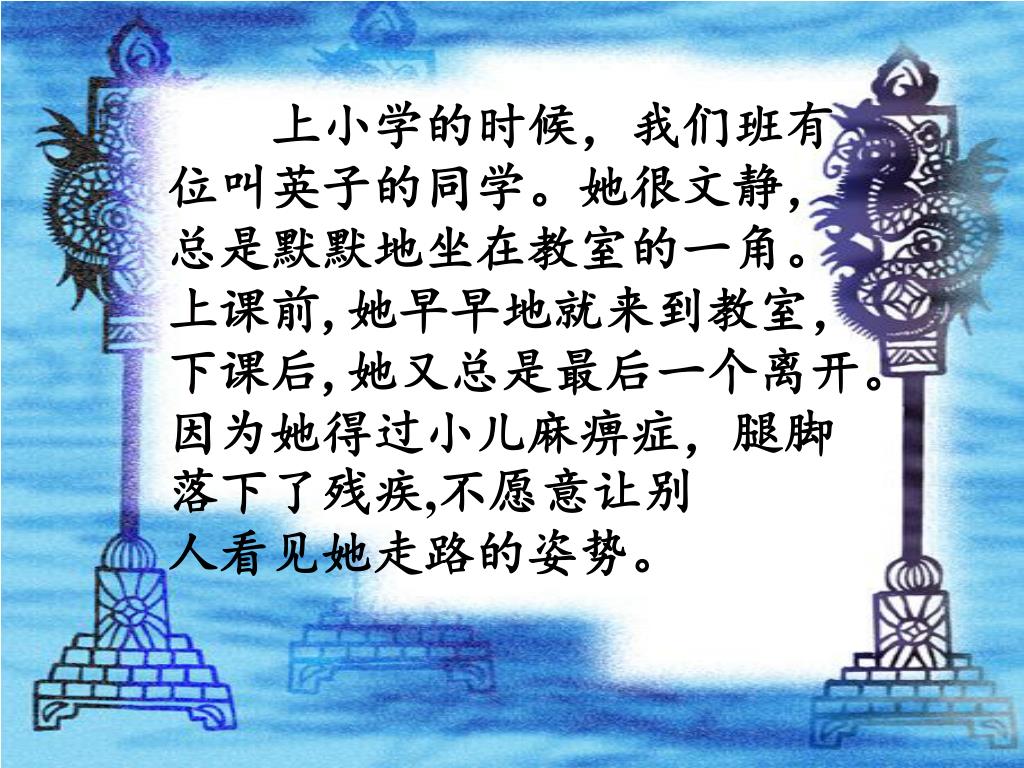 上小学的时候，我们班有
位叫英子的同学。她很文静，
总是默默地坐在教室的一角。
上课前,她早早地就来到教室，
下课后,她又总是最后一个离开。
因为她得过小儿麻痹症，腿脚
落下了残疾,不愿意让别
人看见她走路的姿势。